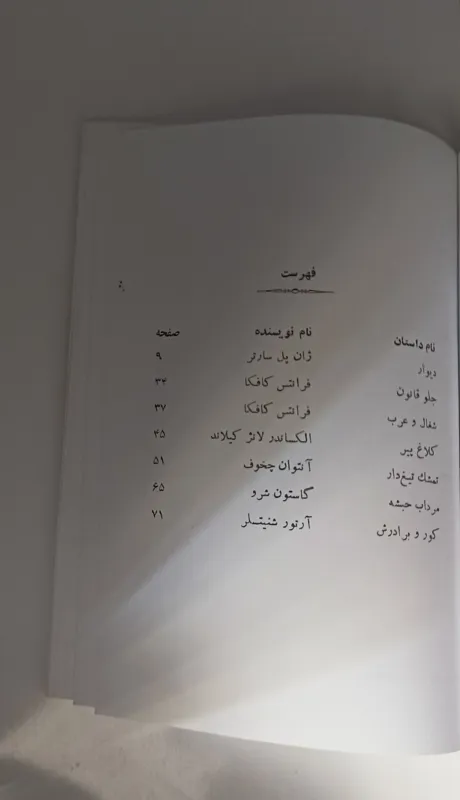 فهرست
نام داستان نام نویسنده صفحه
دیوار ژان پل سارتر ۹
جلو قانون فرانتس کافکا ۳۲
شغال و عرب فرانتس کافکا ۳۷
کلاغ پیر الکساندر لانژ کیلاند ۴۵
تمشك تیغ‌دار آنتوان چخوف ۵۱
مرداب حبشه گاستون شرو ۶۵
کور و برادرش آرتور شنیتسلر ۷۱